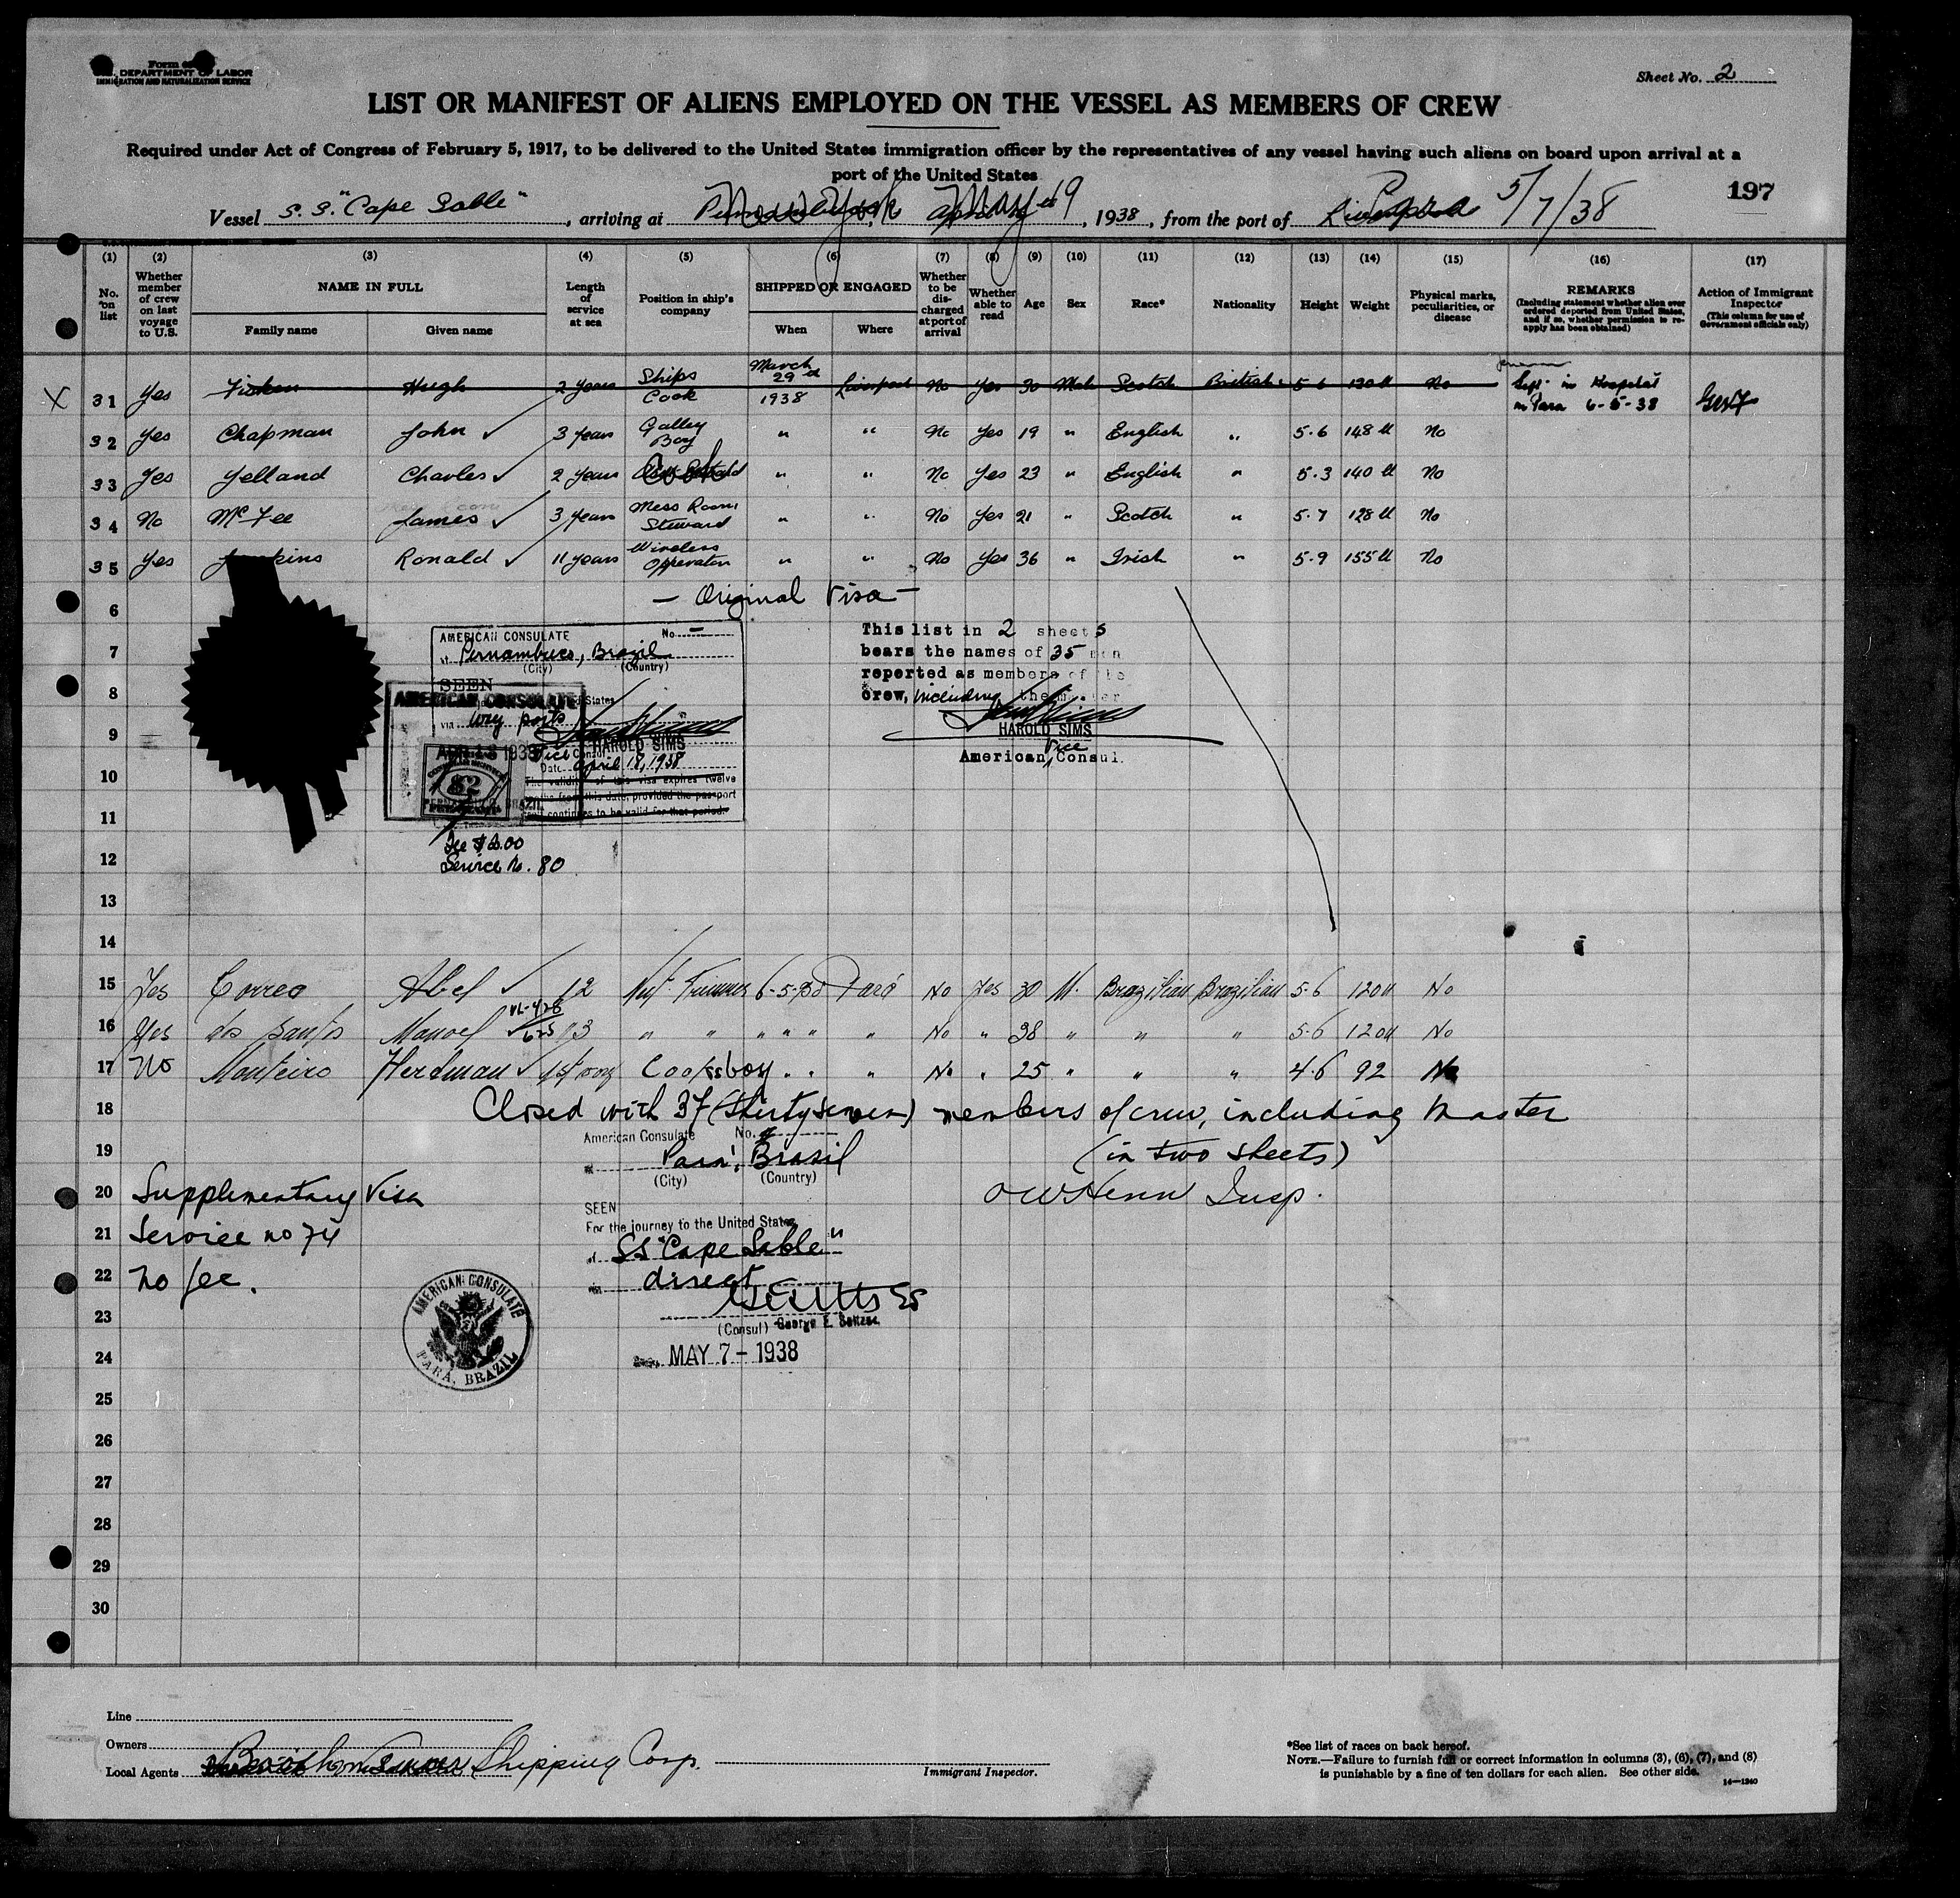 Form
U.S. DEPARTMENT OF LABOR
IMMIGRATION AND NATURALIZATION SERVICE
Sheet No. 2
LIST OR MANIFEST OF ALIENS EMPLOYED ON THE VESSEL AS MEMBERS OF CREW
Required under Act of Congress of February 5, 1917, to be delivered to the United States immigration officer by the representatives of any vessel having such aliens on board upon arrival at a
port of the United States
197
Vessel S. S. "Cape Sable", arriving at New York, May 19, 1938, from the port of Para 5/7/38
(1) (2) (3) (4) (5) (6) (7) (8) (9) (10) (11) (12) (13) (14) (15) (16) (17)
No. on list
Whether member of crew on last voyage to U.S.
NAME IN FULL
Family name Given name
Length of service at sea
Position in ship's company
SHIPPED OR ENGAGED
When Where
Whether to be discharged at port of arrival
Whether able to read
Age Sex Race* Nationality Height Weight
Physical marks, peculiarities, or disease
REMARKS
(Including statement whether alien ever ordered deported from United States, and if so, whether permission to reapply has been obtained)
Action of Immigrant Inspector
(This column for use of Government officials only)
X 31 Yes Hugh 2 years Ships Cook March 29th 1938 Liverpool No Yes 30 Male Scotch British 5-6 130 ll No Left in Hospital in Para 6-5-38
32 Yes Chapman John ✓ 3 years Galley Boy " " No Yes 19 " English " 5.6 148 ll No
33 Yes Yelland Charles ✓ 2 years Cook " " No Yes 23 " English " 5.3 140 ll No
34 No McFee James ✓ 3 years Mess Room Steward " " No Yes 21 " Scotch " 5.7 128 ll No
35 Yes Ronald ✓ 11 years Wireless Opperator " " No Yes 36 " Irish " 5.9 155 ll No
6 — Original Visa —
AMERICAN CONSULATE No. —
at Pernambuco, Brazil
(City) (Country)
SEEN
AMERICAN CONSULATE
via way ports
HAROLD SIMS
Vice Consul
Date April 18, 1938
The validity of this visa expires twelve
months from this date, provided the passport
continues to be valid for that period.
$2
Fee $2.00
Service No. 80
This list in 2 sheets
bears the names of 35 men
reported as members of the
crew, including the master
HAROLD SIMS
American Vice Consul.
7
8
9
10
11
12
13
14
15 Yes Correa Abel ✓ 12 Trimmer 6-5-38 Pará No Yes 30 M. Brazilian Brazilian 5.6 120 ll No
16 Yes dos Santos Manoel ✓ 13 " " " " " " No " 38 " " " 5.6 120 ll No
17 No Monteiro Herdman ✓ 1st voy Cooks boy " " " No " 25 " " " 4.6 92 No
18 Closed with 37 (thirty seven) members of crew, including Master
19 (in two sheets)
American Consulate No.
at Pará, Brasil
(City) (Country)
20 Supplimentary Visa
21 Service no 74
22 no fee.
OWHenn Insp.
SEEN
For the journey to the United States
SS "Cape Sable"
direct
(Consul) George E. Seltzer
MAY 7 - 1938
AMERICAN CONSULATE
PARÁ, BRAZIL
23
24
25
26
27
28
29
30
Line
Owners
Local Agents Shipping Corp.
Immigrant Inspector.
*See list of races on back hereof.
NOTE.—Failure to furnish full or correct information in columns (3), (6), (7), and (8)
is punishable by a fine of ten dollars for each alien. See other side.
14—1240